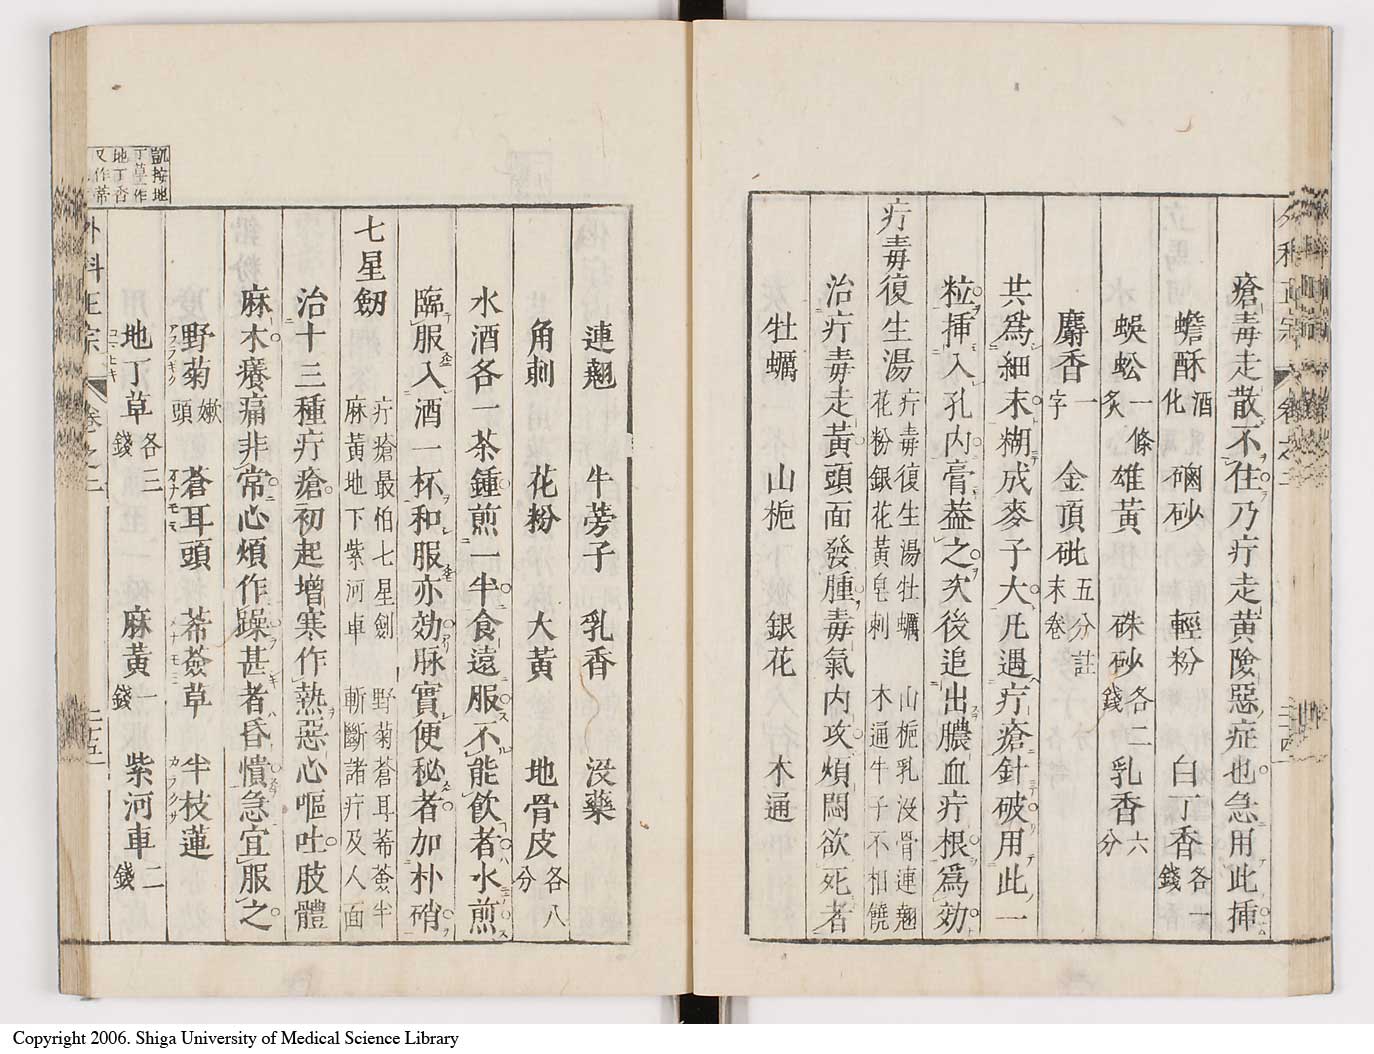 瘡毒走散不住乃疔走黄險惡症也急用此揷
蟾酥酒化 硇砂 輕粉 白丁香各一錢
蜈蚣一條炙 雄黃 硃砂各二錢 乳香六分
麝香一字 金頂砒五分註末卷
共爲細末糊成麥子大凡遇疔瘡針破用此一
粒揷入孔内膏葢之次後追出膿血疔根爲効
疔毒復生湯 疔毒復生湯牡蠣 山梔乳沒骨連翹
花粉銀花黃皂刺 木通牛子不相饒
治疔毒走黃頭面發腫毒氣内攻煩悶欲死者
牡蠣 山梔 銀花 木通
連翹 牛蒡子 乳香 沒藥
角刺 花粉 大黃 地骨皮各八分
水酒各一茶鍾煎一半食遠服不能飲者水煎
臨服入酒一杯和服亦効脉實便秘者加朴硝
七星劒 疔瘡最怕七星劍 野菊蒼耳莃薟半
麻黃地下紫河車 斬斷諸疔及人面
治十三種疔瘡初起增寒作熱惡心嘔吐肢體
麻木癢痛非常心煩作躁甚者昏憒急宜服之
野菊嫰頭 蒼耳頭 莃薟草 半枝蓮
アフラギク ヲナモミ メナモミ カラクサ
地丁草各三錢 麻黃一錢 紫河車二錢
凱按地
丁草作
地丁香
又作蒂
外科正宗 卷之二 二十五